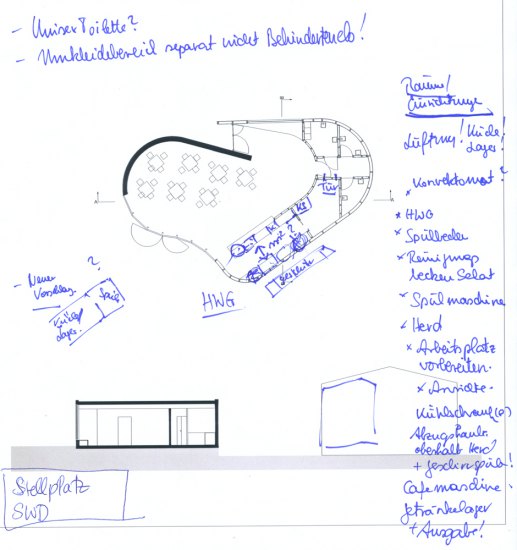 - Unisex Toilette?
- Umkleidebereich separat nicht Behinderten
Räume/
Einrichtung
Lüftung! Küche!
Lager!
Konvektomat?
* HWG
* Spülbecken
* Reinigung
becken Salat
* Spülmaschine
* Herd
* Arbeitsplatz
vorbereiten.
* Anrichte.
Kühlschrank(e)
Abzugshaube
oberhalb Herd?
+ geschirrspüler!
Cafemaschine
Getränkelager
+ Ausgabe!
Tür
KS
KT
m² ?
geschirr
HWG
- Neuer
Vorschlag
?
Küche
Lager.
Spül
Stellplatz
SWD